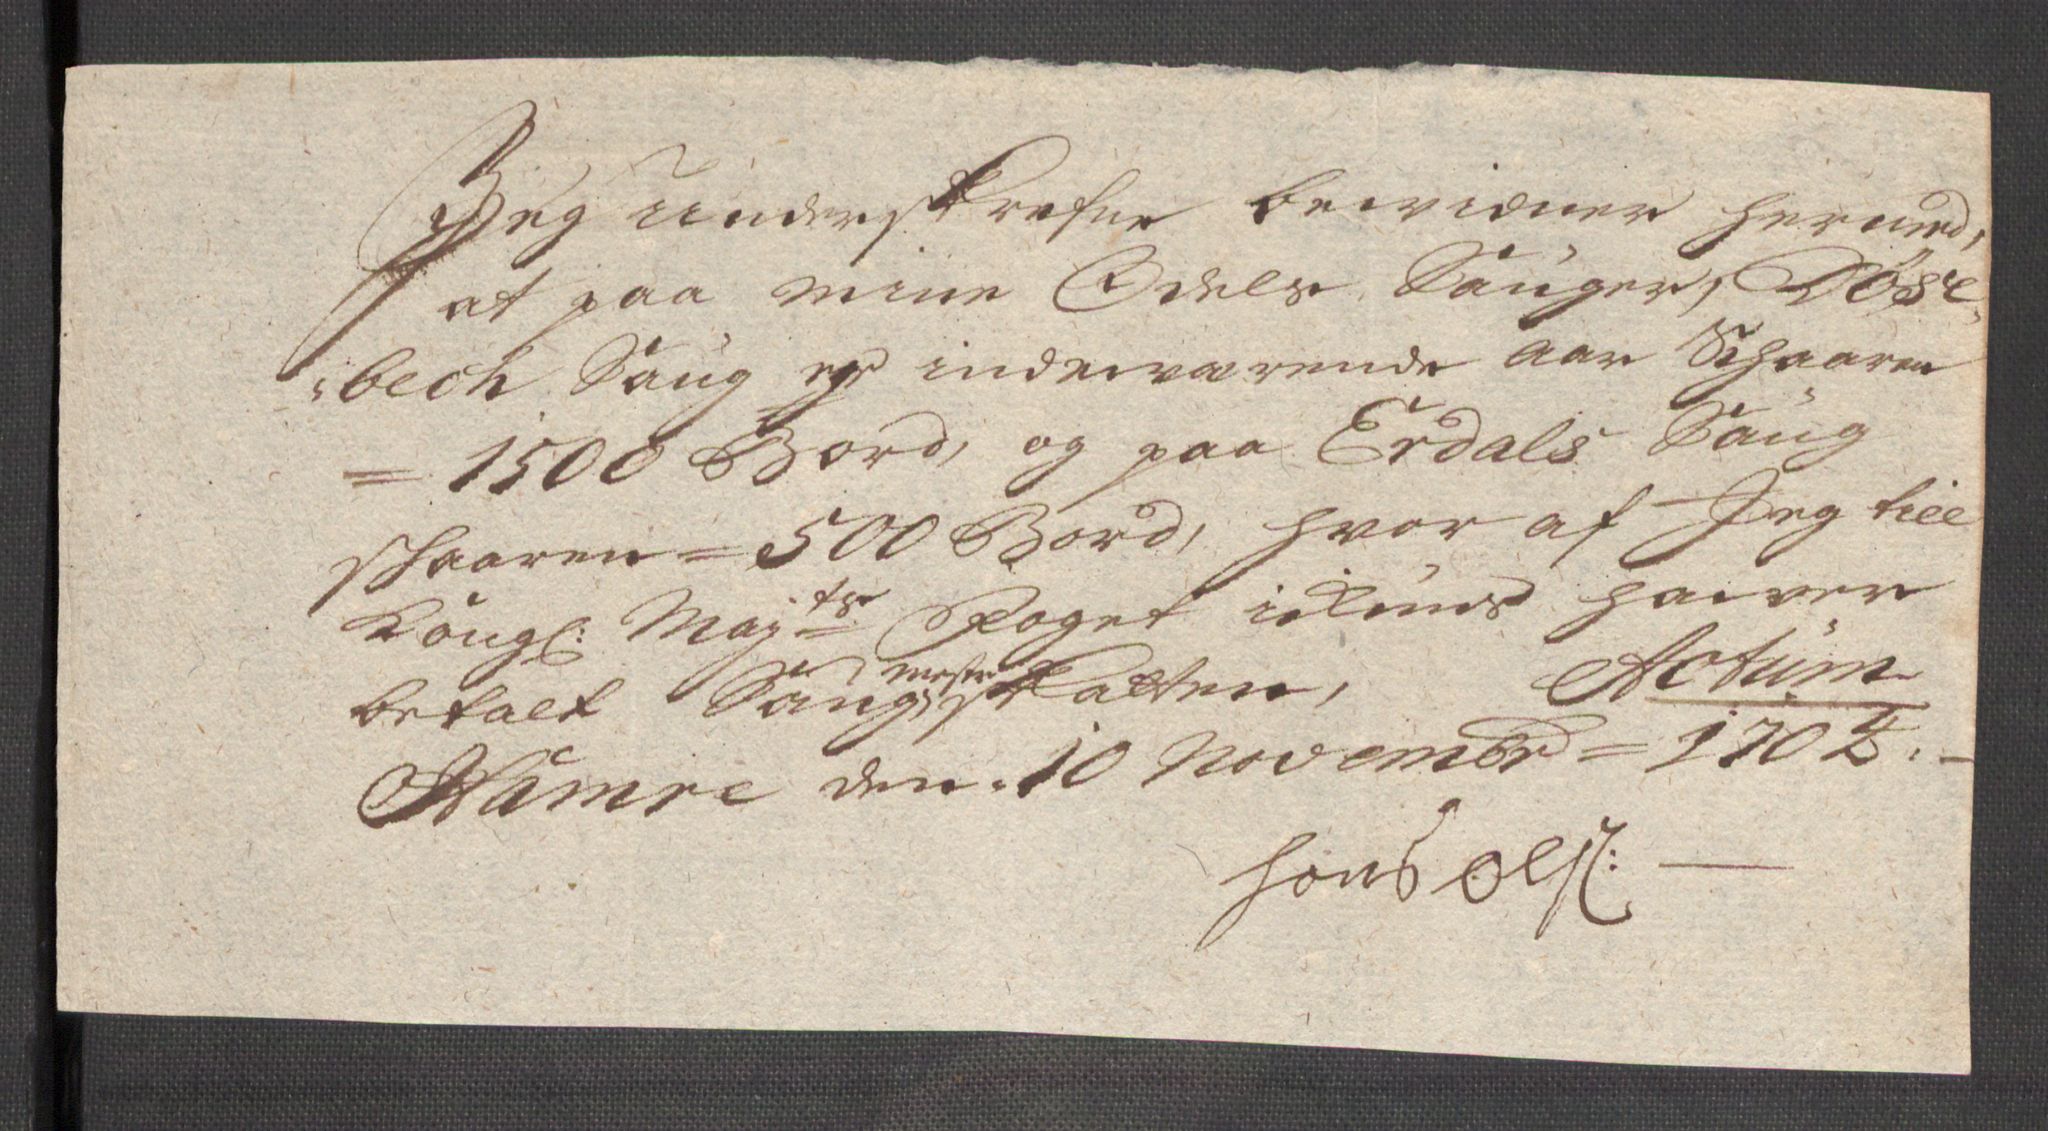 Jeg underskrefne bewidner hermed,
at paa mine Odels Sauger, Döse-
-bech Saug er indewærende Aar Schaaren
= 1500 Bord, og paa Erdals Saug
schaaren = 500 Bord, hvor af Jeg till
Kongl: Mayts Foget haiver
betalt Saug mester skatten, Actum
Hamre den 10 Novembr = 1702.
Hans Ols: